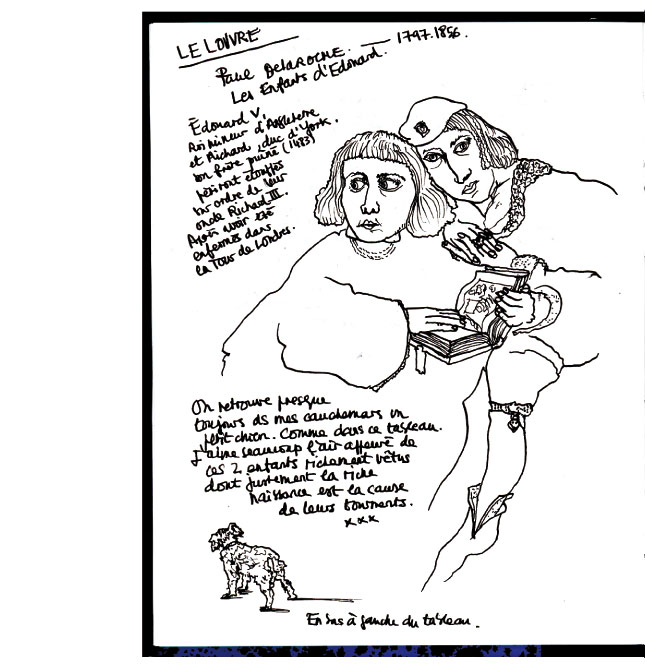 LE LOUVRE
Paul DELAROCHE. — 1797.1856.
Les Enfants d'Edouard.
Édouard V,
Roi mineur d'Angleterre
et Richard, duc d'York.
son frère puiné (1483)
périront étouffés
sur ordre de leur
oncle Richard III.
Après avoir été
enfermés dans
la Tour de Londres.
On retrouve presque
toujours ds mes cauchemars un
petit chien. Comme dans ce tableau.
J'aime beaucoup l'air affeuré de
ces 2 enfants richement vêtus
dont justement la riche
naissance est la cause
de leurs tourments.
xxx
En bas à gauche du tableau.